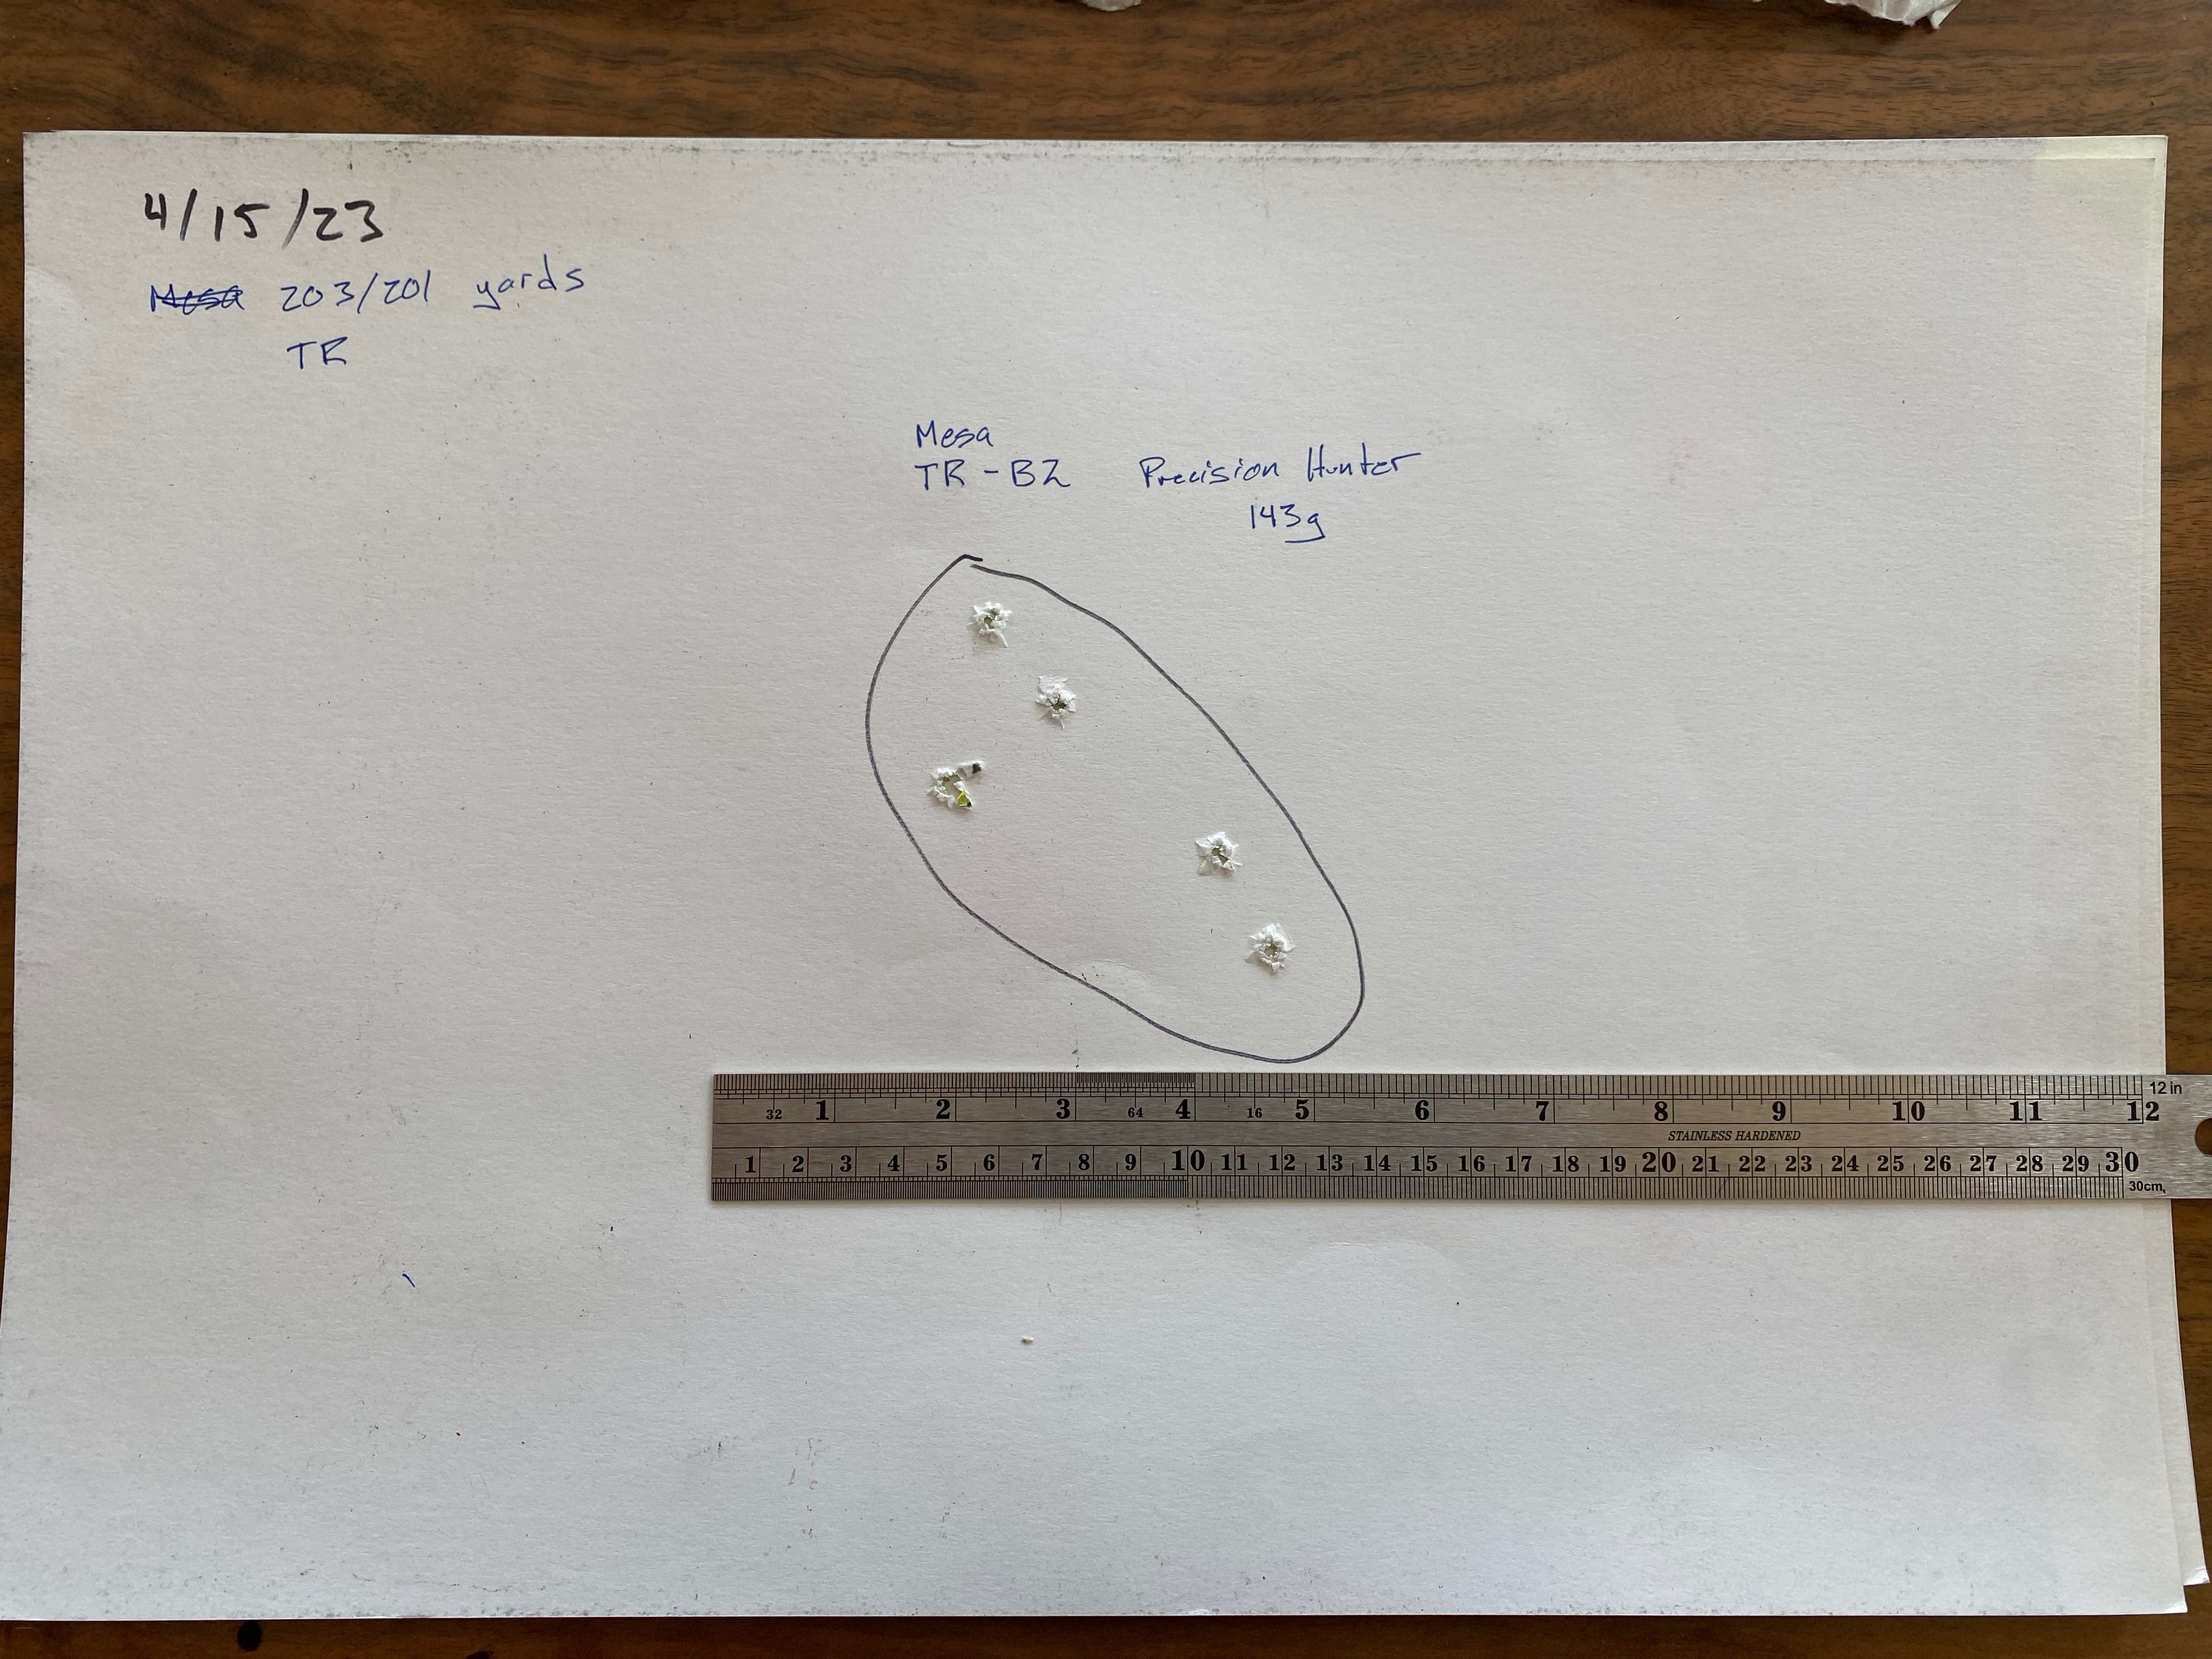 4/15/23
Mesa 203/201 yards
TR
Mesa
TR-BZ Precision Hunter
143g
12 in
32 1 2 3 64 4 16 5 6 7 8 9 10 11 12
STAINLESS HARDENED
1 2 3 4 5 6 7 8 9 10 11 12 13 14 15 16 17 18 19 20 21 22 23 24 25 26 27 28 29 30
30cm.